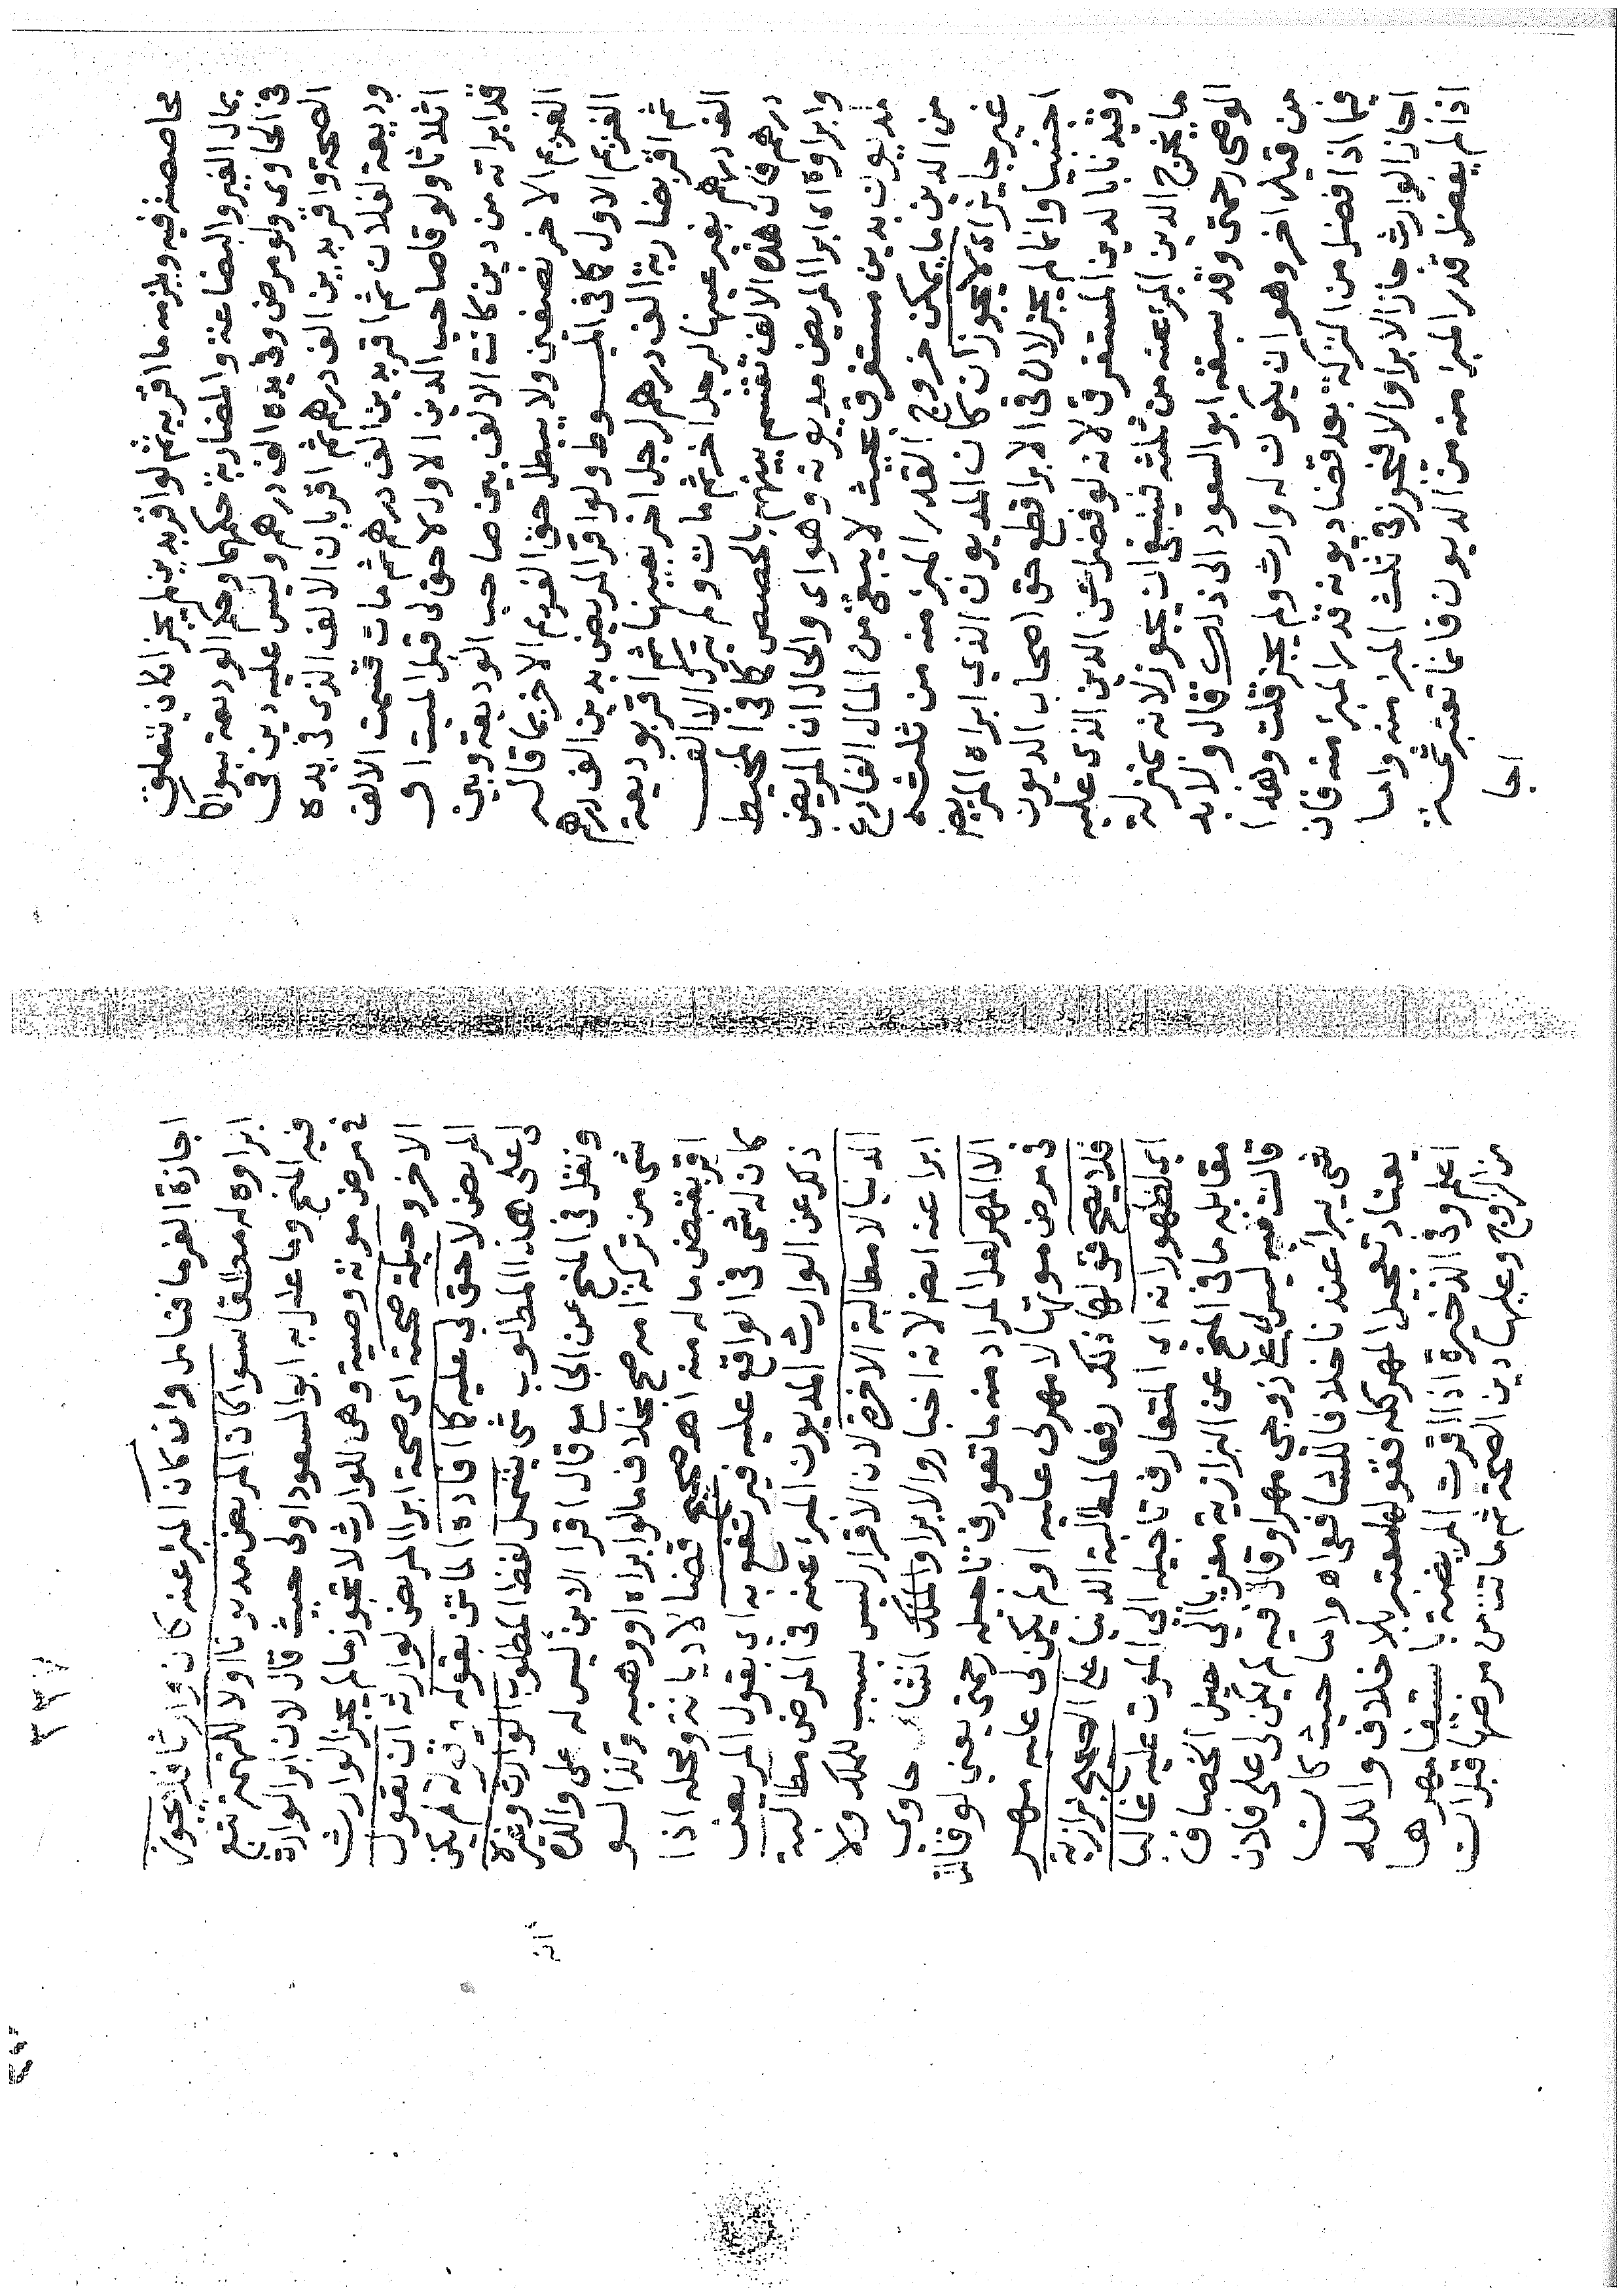 محاصصته فيه ويلزمه ما اقر به ثم لو اقر بدين لم يجز اذا كان يتعلق
بمال الغير والبضاعة والمضاربة حكمها وحكم الوديعة سواكا
في الحاوي ولو مرض وفي يده الف درهم وليس عليه دين في
الصحة واقر بدين الف درهم ثم اقر بان الالف الذي في يده
وديعة لفلان ثم اقر بدين الف درهم ثم مات قسمت الالف
اثلاثا ولو قال صاحب الدين الاول لاحق لي قبل الميت او
قد ابراته من دين كانت الالف بين صاحب الوديعة وبين
الغريم الاخر نصفين ولا يبطل حق الغريم الاخر بما قاله
الغريم الاول كما في المبسوط ولو اقر المريض بدين الف درهم
ثم اقر بضاربة الف درهم لرجل اخر بعينها ثم اقر بوديعة
الف درهم بغير عينها لرجل اخر ثم مات ولم يترك الا الف
درهم فان هذه الالف تقسم بينهم بالحصص كما في المحيط
وابراوه اي ابرا المريض مديونه وهو اي والحال ان المريض
مديون بدين مستغرق بحيث لا يبقى من المال الفارغ
من الدين ما يمكن خروج القدر المبرا منه من ثلثه
غير جايز اي لا يجوز ان كان المديون الذي ابراه المريض
اجنبيا وانما لم يجز لان في الابرا قطع حق اصحاب الديون
وقيدنا بالدين المستغرق لانه لو فضل شي من الدين الذي عليه
ما يخرج الدين المبرا عنه من ثلثه فينبغي ان يجوز لانه بمنزلة
الوصي رحمتي وقد سبقه ابو السعود الى ذلك قال ولا بد
من قيد اخر وهو ان يكون له وارث ولم يجز قلت وهذا
فيما اذا فضل من التركة بعد قضا ديونه قدر المبرا منه فان
اجاز الوارث جاز الابرا والا فيجوز في ثلث المبرا منه واما
اذا لم يفضل قدر المبرا منه من الديون فانما تعتبر ثمة
اجا
اجازة الغرما فتامل وان كان المبرا عنه كان وارثا فلا يجوز
ابراوه له مطلقا سوا كان المريض مديونا اولا للتهمة تتبع
فيه المنح وما علل به ابو السعود اولى حيث قال لان ابرا الوارث
في مرض موته وصية وهي للوارث لا تجوز ما لم يجز الوارث
الاخر وحيلة صحته اي صحة ابرا المريض لوارثه ان يقول
المريض لاحق لي عليه كما افاده الماتن بقوله وقوله لم يكن
لي على هذا المطلوب شي يشمل لفظ المطلوب الوارث وغيره
ونقل في المنح عن الجامع قال اقر الابن ليس له على والده
شي من تركة امه صح بخلاف ما لو ابراه او وهبه وكذا لو
اقر بقبض ماله منه اه صحيح قضا لا ديانة ومحله اذا
كان له شي في الواقع عليه فيرتفع به اي بقول المريض
ذكر عن الوارث المديون المبرا عنه في المرض مطالبة
الدنيا لا مطالبة الاخرة لان الاقرار ليس بسبب للملك ولا
ابرا عنه ايضا لانه اخبار والابرا والملك انشاء حاوي
الا المهر لعل المراد منه ما تعورف تاجيله رحمتي يعني لو قالت
في مرض موتها لا مهر لي عليه او لم يكن لي عليه مهر
فلا يصح قولها ذلك رفعا لمطالبة الدنيا على الصحيح بزازية
اي لظهور انه اي المتعارف تاجيله الى الموت عليه غالبا
مقابله ما في المنح عن البزازية معزيا الى حيل الخصاف
قالت فيه ليس لي على زوجي مهر او قال فيه لم يكن لي على فلان
شي يبرأ عندنا خلافا للشافعي اه واما حيث كان
يعتاد تعجيل المهر كله فقولها معتبر بلا خلاف والله
اعلم وفي الذخيرة اذا اقرت المريضة باستيفا مهرها
من الزوج وعليها دين الصحة ثم ماتت من مرضها قبل ان
٣٣٧